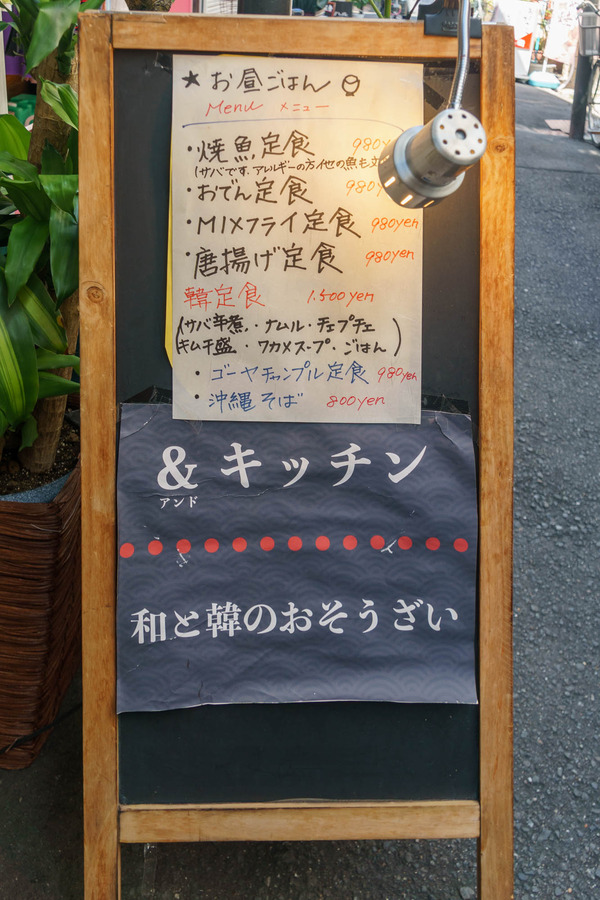 ★ お昼ごはん
Menu メニュー
・焼魚定食 980y
(サバです、アレルギーの方他の魚も
・おでん定食 980
・MIXフライ定食 980yen
・唐揚げ定食 980yen
韓定食 1.500yen
(サバ辛煮・ナムル・チェプチェ
キムチ盛・ワカメスープ・ごはん)
・ゴーヤチャンプル定食 980yen
・沖縄そば 800yen
& キッチン
アンド
和と韓のおそうざい